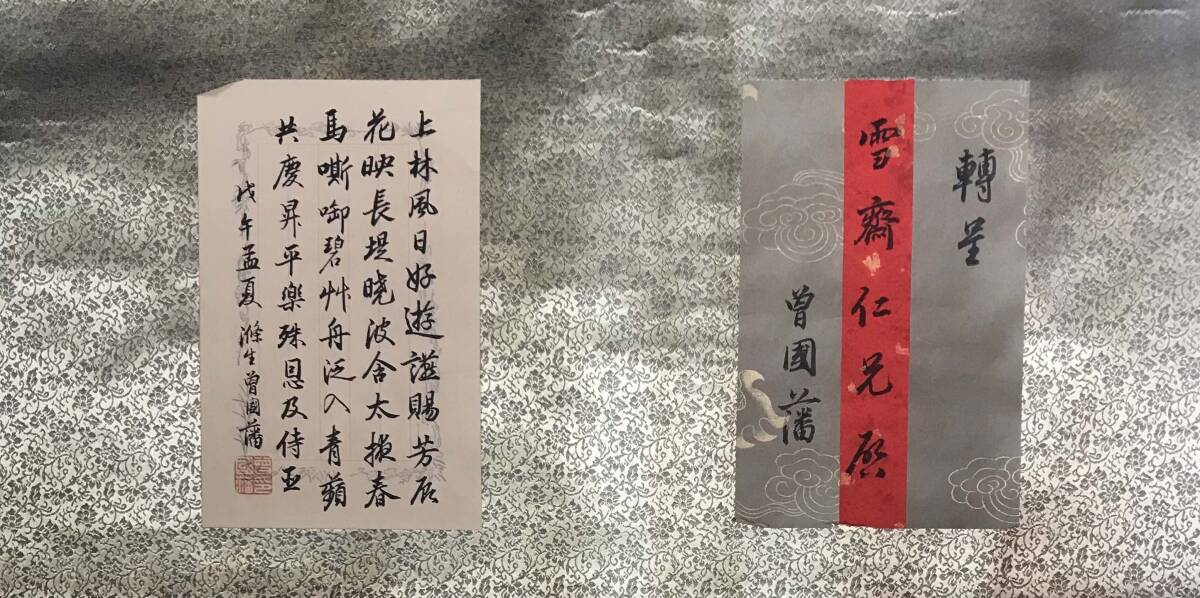 轉呈
雪齋仁兄啓
曾國藩
上林風日好遊讌賜芳辰
花映長堤曉波含太掖春
馬嘶啣碧艸舟泛入青蘋
共慶昇平樂殊恩及侍臣
戊午孟夏 滌生曾國藩